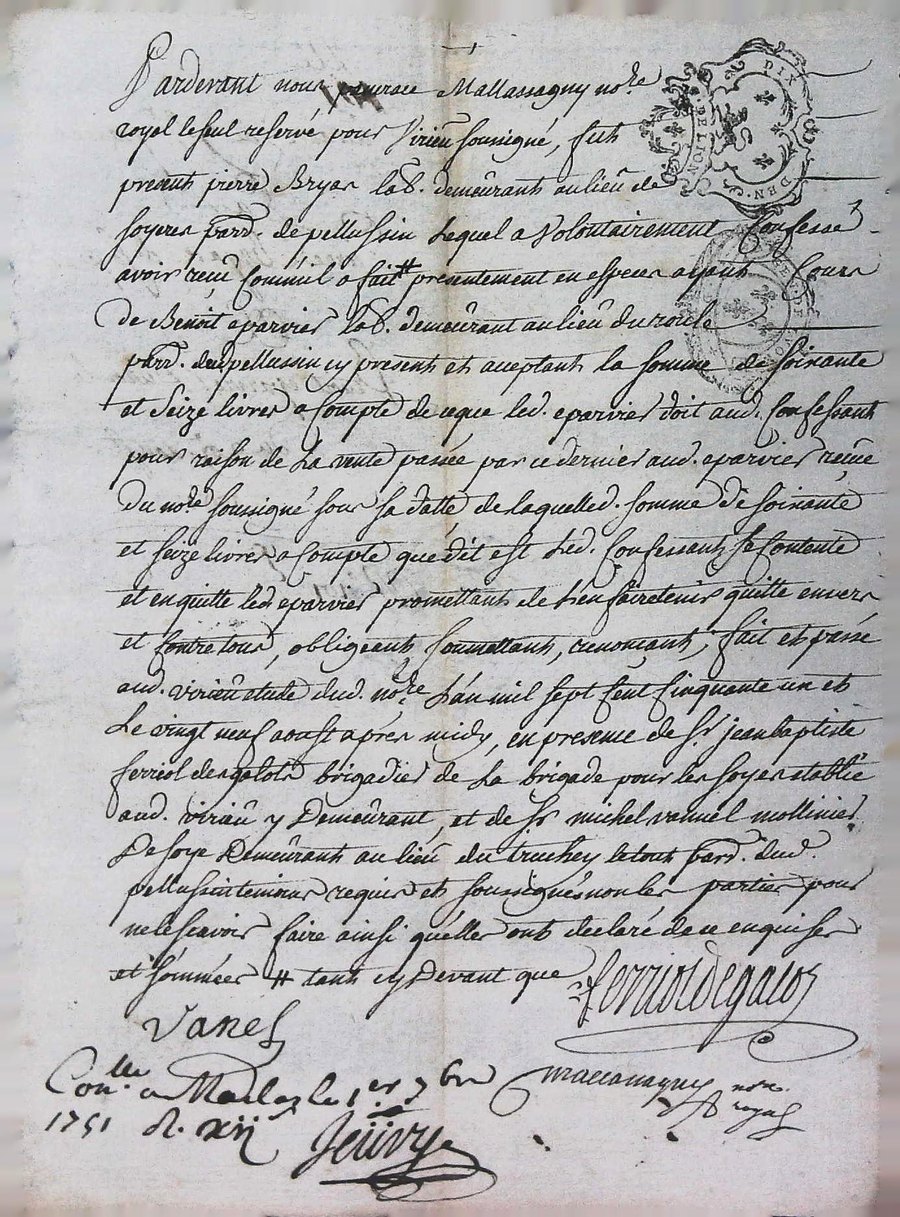 Pardevant nous Mallassagny no.re
royal le seul reservé pour Virieu soussigné, fut
present pierre Bryas lab.r demeurant au lieu de
soyeres parr. de pellussin Lequel a Volontairement Confessé
avoir reçu Comme il a fait # presentement en especes ayant Cours
de Benoit eparvier lab.r demeurant au lieu du roule
parr. dud pellussin cy present et aceptant la somme de soixante
et Seize livres a Compte de ce que led. eparvier doit aud. Confessant
pour raison de La vente passée par ce dernier aud. eparvier reçue
Du no.re soussigné sous sa datte de laquelle d. somme de soixante
et seize livres a Compte que dit est Led. Confessant se Contente
et en quitte led eparvier promettant de l'en faire tenir quitte envers
et Contre tous, obligeant, soumettant, renonceant, fait et passé
aud. virieu etude dud. no.re L'an mil sept Cent Cinquante un et
Le vingt neuf aoust après midy, en presence de Sr. jean baptiste
ferriol degalots brigadier de La brigade pour les soyes etablie
aud. virieu y Demeurant, et de Sr michel vannel mollinier
De soye Demeurant au lieu du truchey le tout parr. dud.
pellussin temoins requis et soussignés non les parties pour
ne le scavoir faire ainsi quelles ont declaré de ce enquises
et sommées # tant cy Devant que
ferriol degalos
Vanel
Con.lle a Maclas le 1.er 7.bre
mallassagny no.re
royal
1751 R. xii s
DIX DEN.